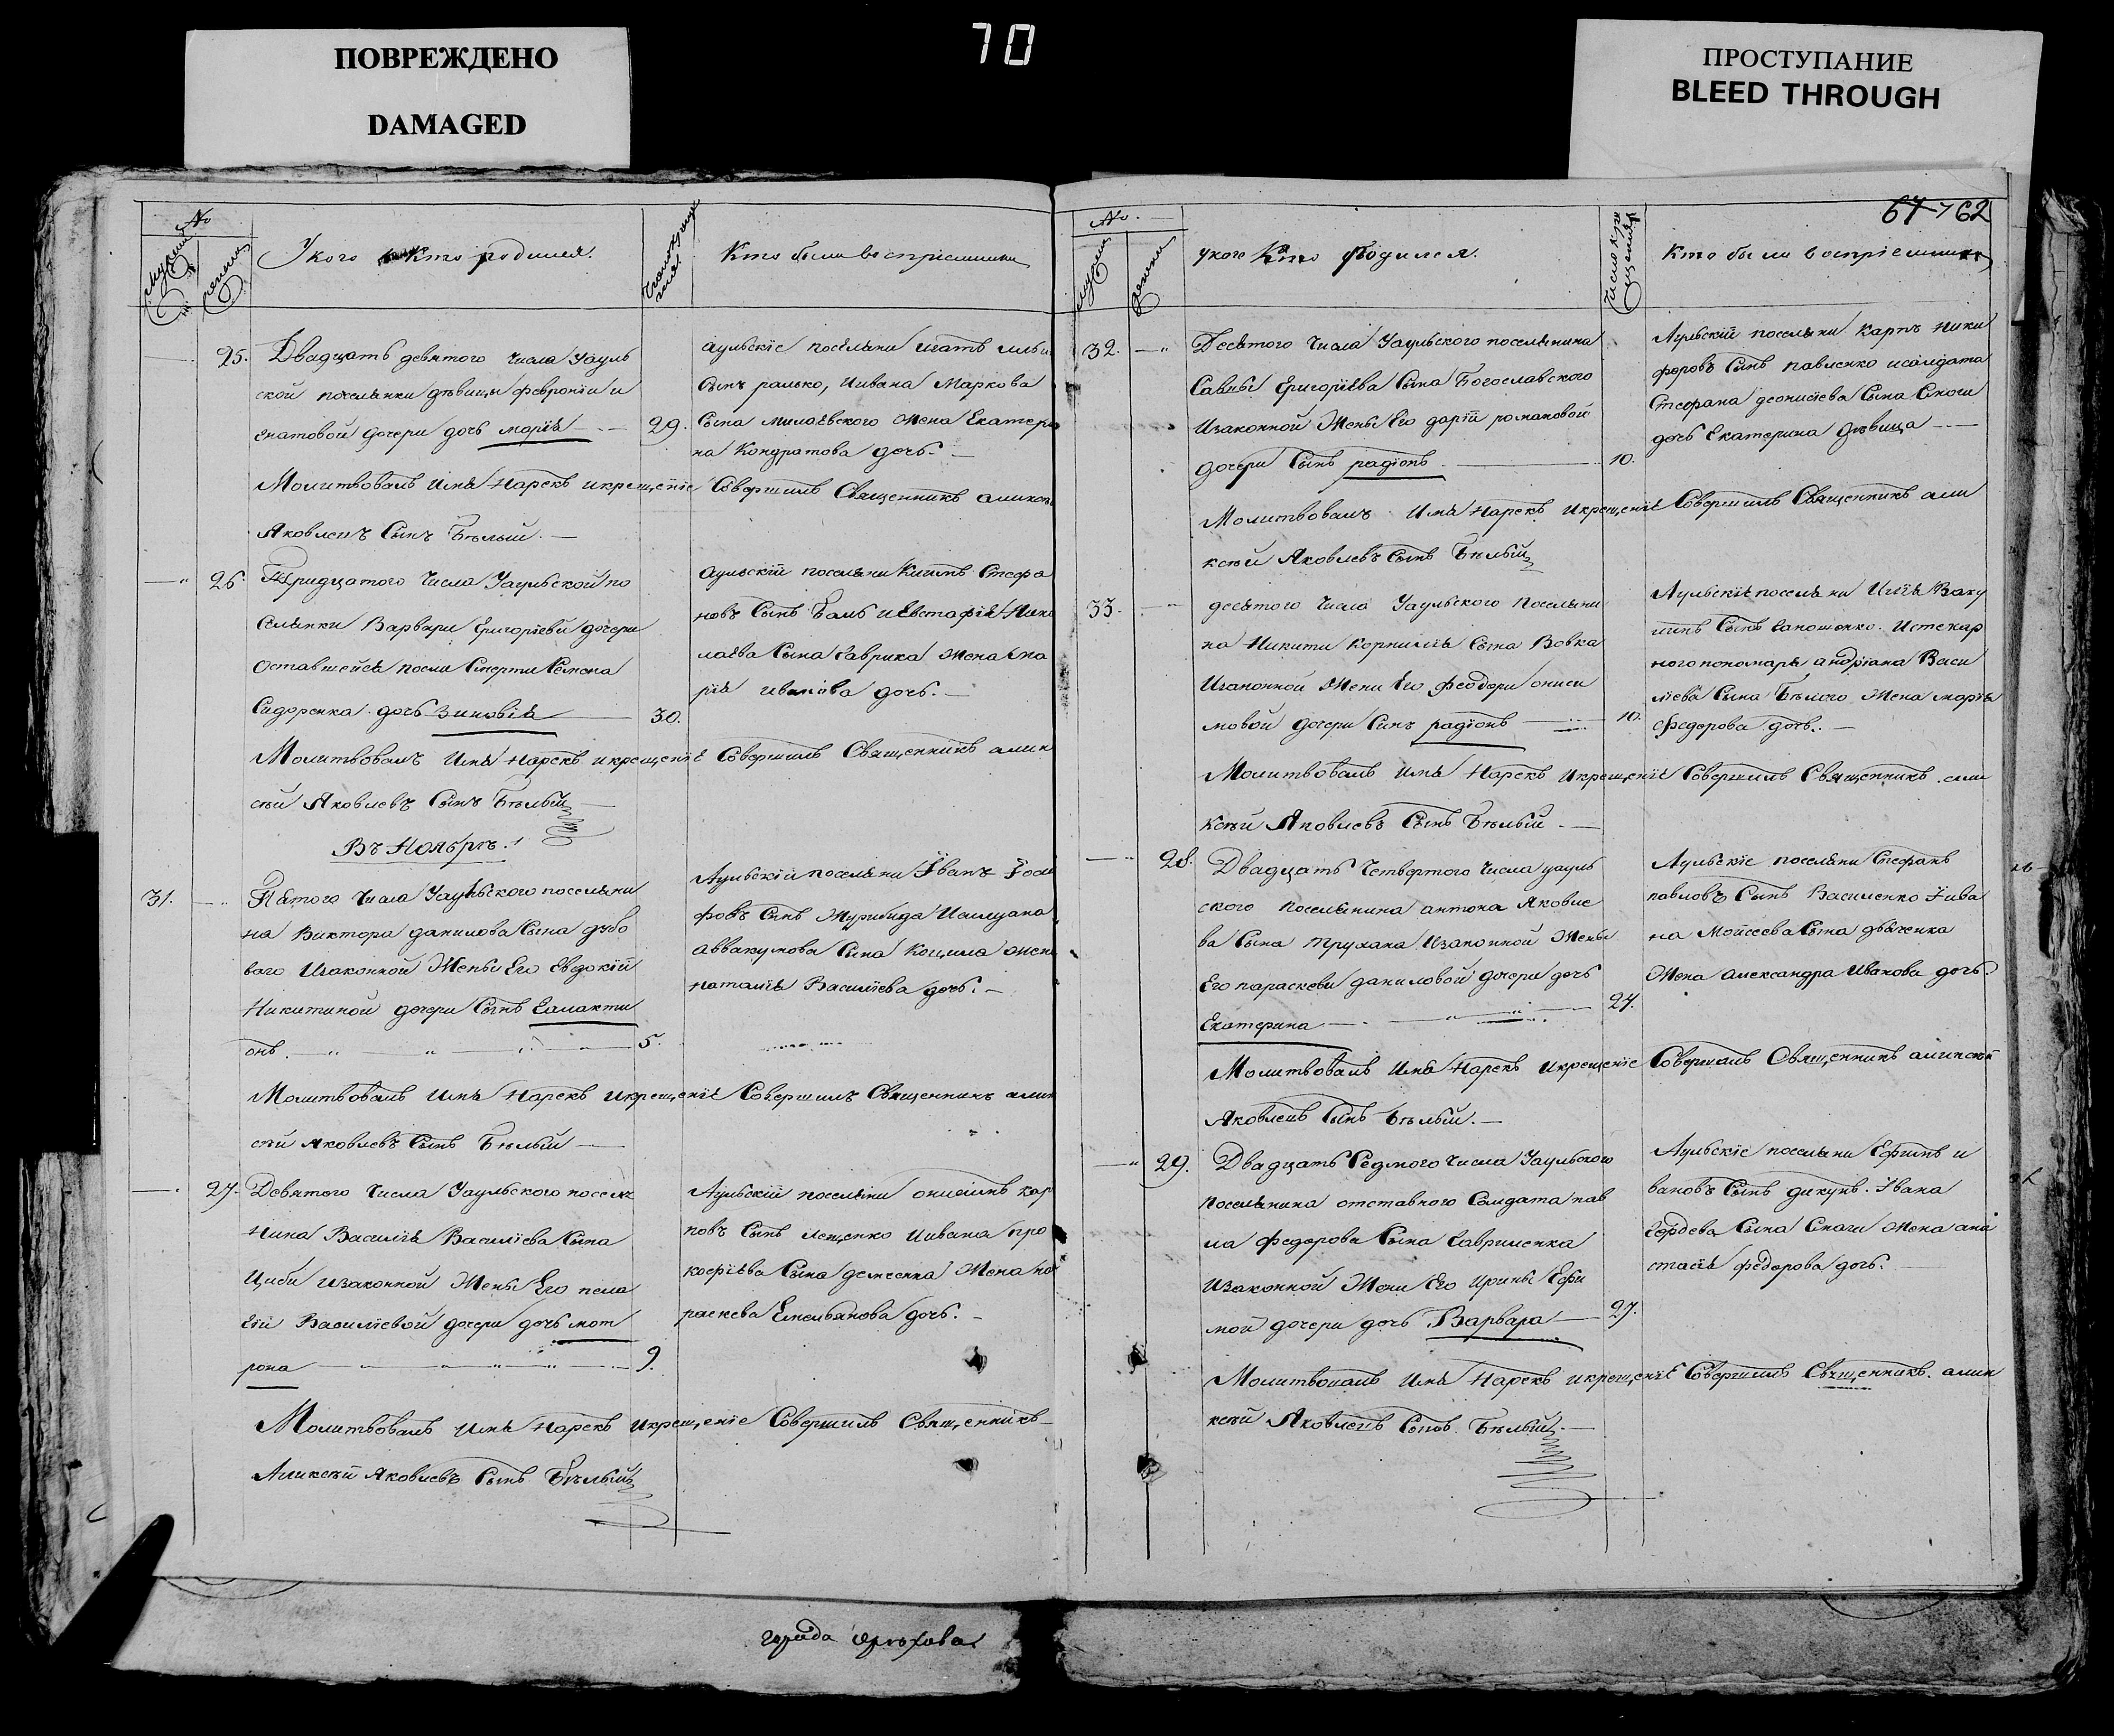 ПОВРЕЖДЕНО
DAMAGED
70
ПРОСТУПАНИЕ
BLEED THROUGH
№
мужеск
женск
У кого Кто родился.
Кто были воспріемники
25. Двадцать девятого числа Уауль
ской поселянки дѣвицы февроніи и
гнатовой дочери дочь марія 29.
аульскіе поселяни игнатъ
Сынъ ралько, Иивана Маркова
Сына милаевского Жена Екатери
на Кондратова дочь.
Молитвовалъ Имя Нарекъ икрещеніе Совершилъ Священникъ аликсѣ
Яковлевъ Сынъ Бѣлый.
26. Тридцатого Числа Уаульской по
Селянки Варвари Григоріевой дочери
Оставшейся посли Смерти Семена
Сидоренка дочь Зиновія 30.
аульскій поселяни Стефа
новъ Сынъ Галъ иЕвстафія Нико
лаева Сына Гаврика Жена ма
рія иванова дочь.
Молитвовалъ Имя Нарекъ икрещеніе Совершилъ Священникъ алик
сѣй Яковлевъ Сынъ Бѣлый
Въ Ноябрѣ.
31. Пятого Числа Уаульского поселяни
на Виктора данилова Сына дубо
вого Изаконной Жены Его Евдокій
Никитиной дочери Сынъ Галакти
онъ. 5.
Аульскій поселяни Іванъ Іоси
фовъ Сынъ
аввакумова Сына Коцила жена
наталія Василіева дочь.
Молитвовалъ Имя Нарекъ икрещеніе Совершилъ Священникъ алик
сѣй Яковлевъ Сынъ Бѣлый
27. Девятого Числа Уаульского поселя
Нина Василія Василіева Сына
Циби изаконной Жены Его пела
гіи Василіевой дочери дочь мот
рона 9.
Аульскій поселяни онисимъ кар
повъ Сынъ лещенко Иивана про
кофіева Сына Жена па
раскева Емельянова дочь.
Молитвовалъ Имя Нарекъ Икрещеніе Совершилъ Священникъ
Аликсѣй Яковлевъ Сынъ Бѣлый
№.
67 62
мужеск
женск
у кого Кто Родился.
Число кре
щенія
Кто были воспріемники
32. Десятого Числа Уаульского поселянина
Савы Григоріева Сына Богославского
Изаконной Жены Его дарій романовой
дочери Сынъ радіонъ 10.
Аульскій поселяни Карпъ Ники
форовъ Сынъ павленко исолдата
Стефана деонисіева Сына Снаги
дочь Екатерина дѣвица
Молитвовалъ Имя Нарекъ Икрещеніе Совершилъ Священникъ али
ксѣй Яковлевъ Сынъ Бѣлый
33. десятого Числа Уаульского Поселяни
на Никити Корниліа Сына Вовка
Изаконной Жени Его феодори ониси
мовой дочери Синъ радіонъ 10.
Аульскія поселяни Илія Ваку
линъ Сынъ Гапошенко. Истекар
ного пономаря андріана Васи
ліева Сына Бѣлого Жена марія
Федорова дочь.
Молитвовалъ имя Нарекъ Икрещеніе Совершилъ Священникъ али
Ксѣй Яковлевъ Сынъ Бѣлый.
28. Двадцать Четвертого Числа уауль
ского поселянина антона Яковле
ва Сына Трухана Изаконной Жены
Его параскеви даниловой дочери дочь
Екатерина 24.
Аульскіе поселяни Стефанъ
павловъ Сынъ Василенко Іива
на Мойсеева Сына дяченка
Жена александра Иванова дочь.
Молитвовалъ Имя Нарекъ Икрещеніе Совершилъ Священникъ аликсѣй
Яковлевъ Сынъ Бѣлый.
29. Двадцать Седмого Числа Уаульского
поселянина отставного Солдата пав
ла федорова Сына Гавриленка
Изаконной Жени Его Ирины Ефи
мой дочери дочь Варвара 27.
Аульскіе поселяни Ефимъ и
вановъ Сынъ дикунъ. Івана
Гордева Сына Снаги Жена ана
стасія федорова дочь.
Молитвовалъ Имя Нарекъ икрещеніе Совершилъ Священникъ. алик
ксѣй Яковлевъ Сынъ Бѣлый.
города орѣхова